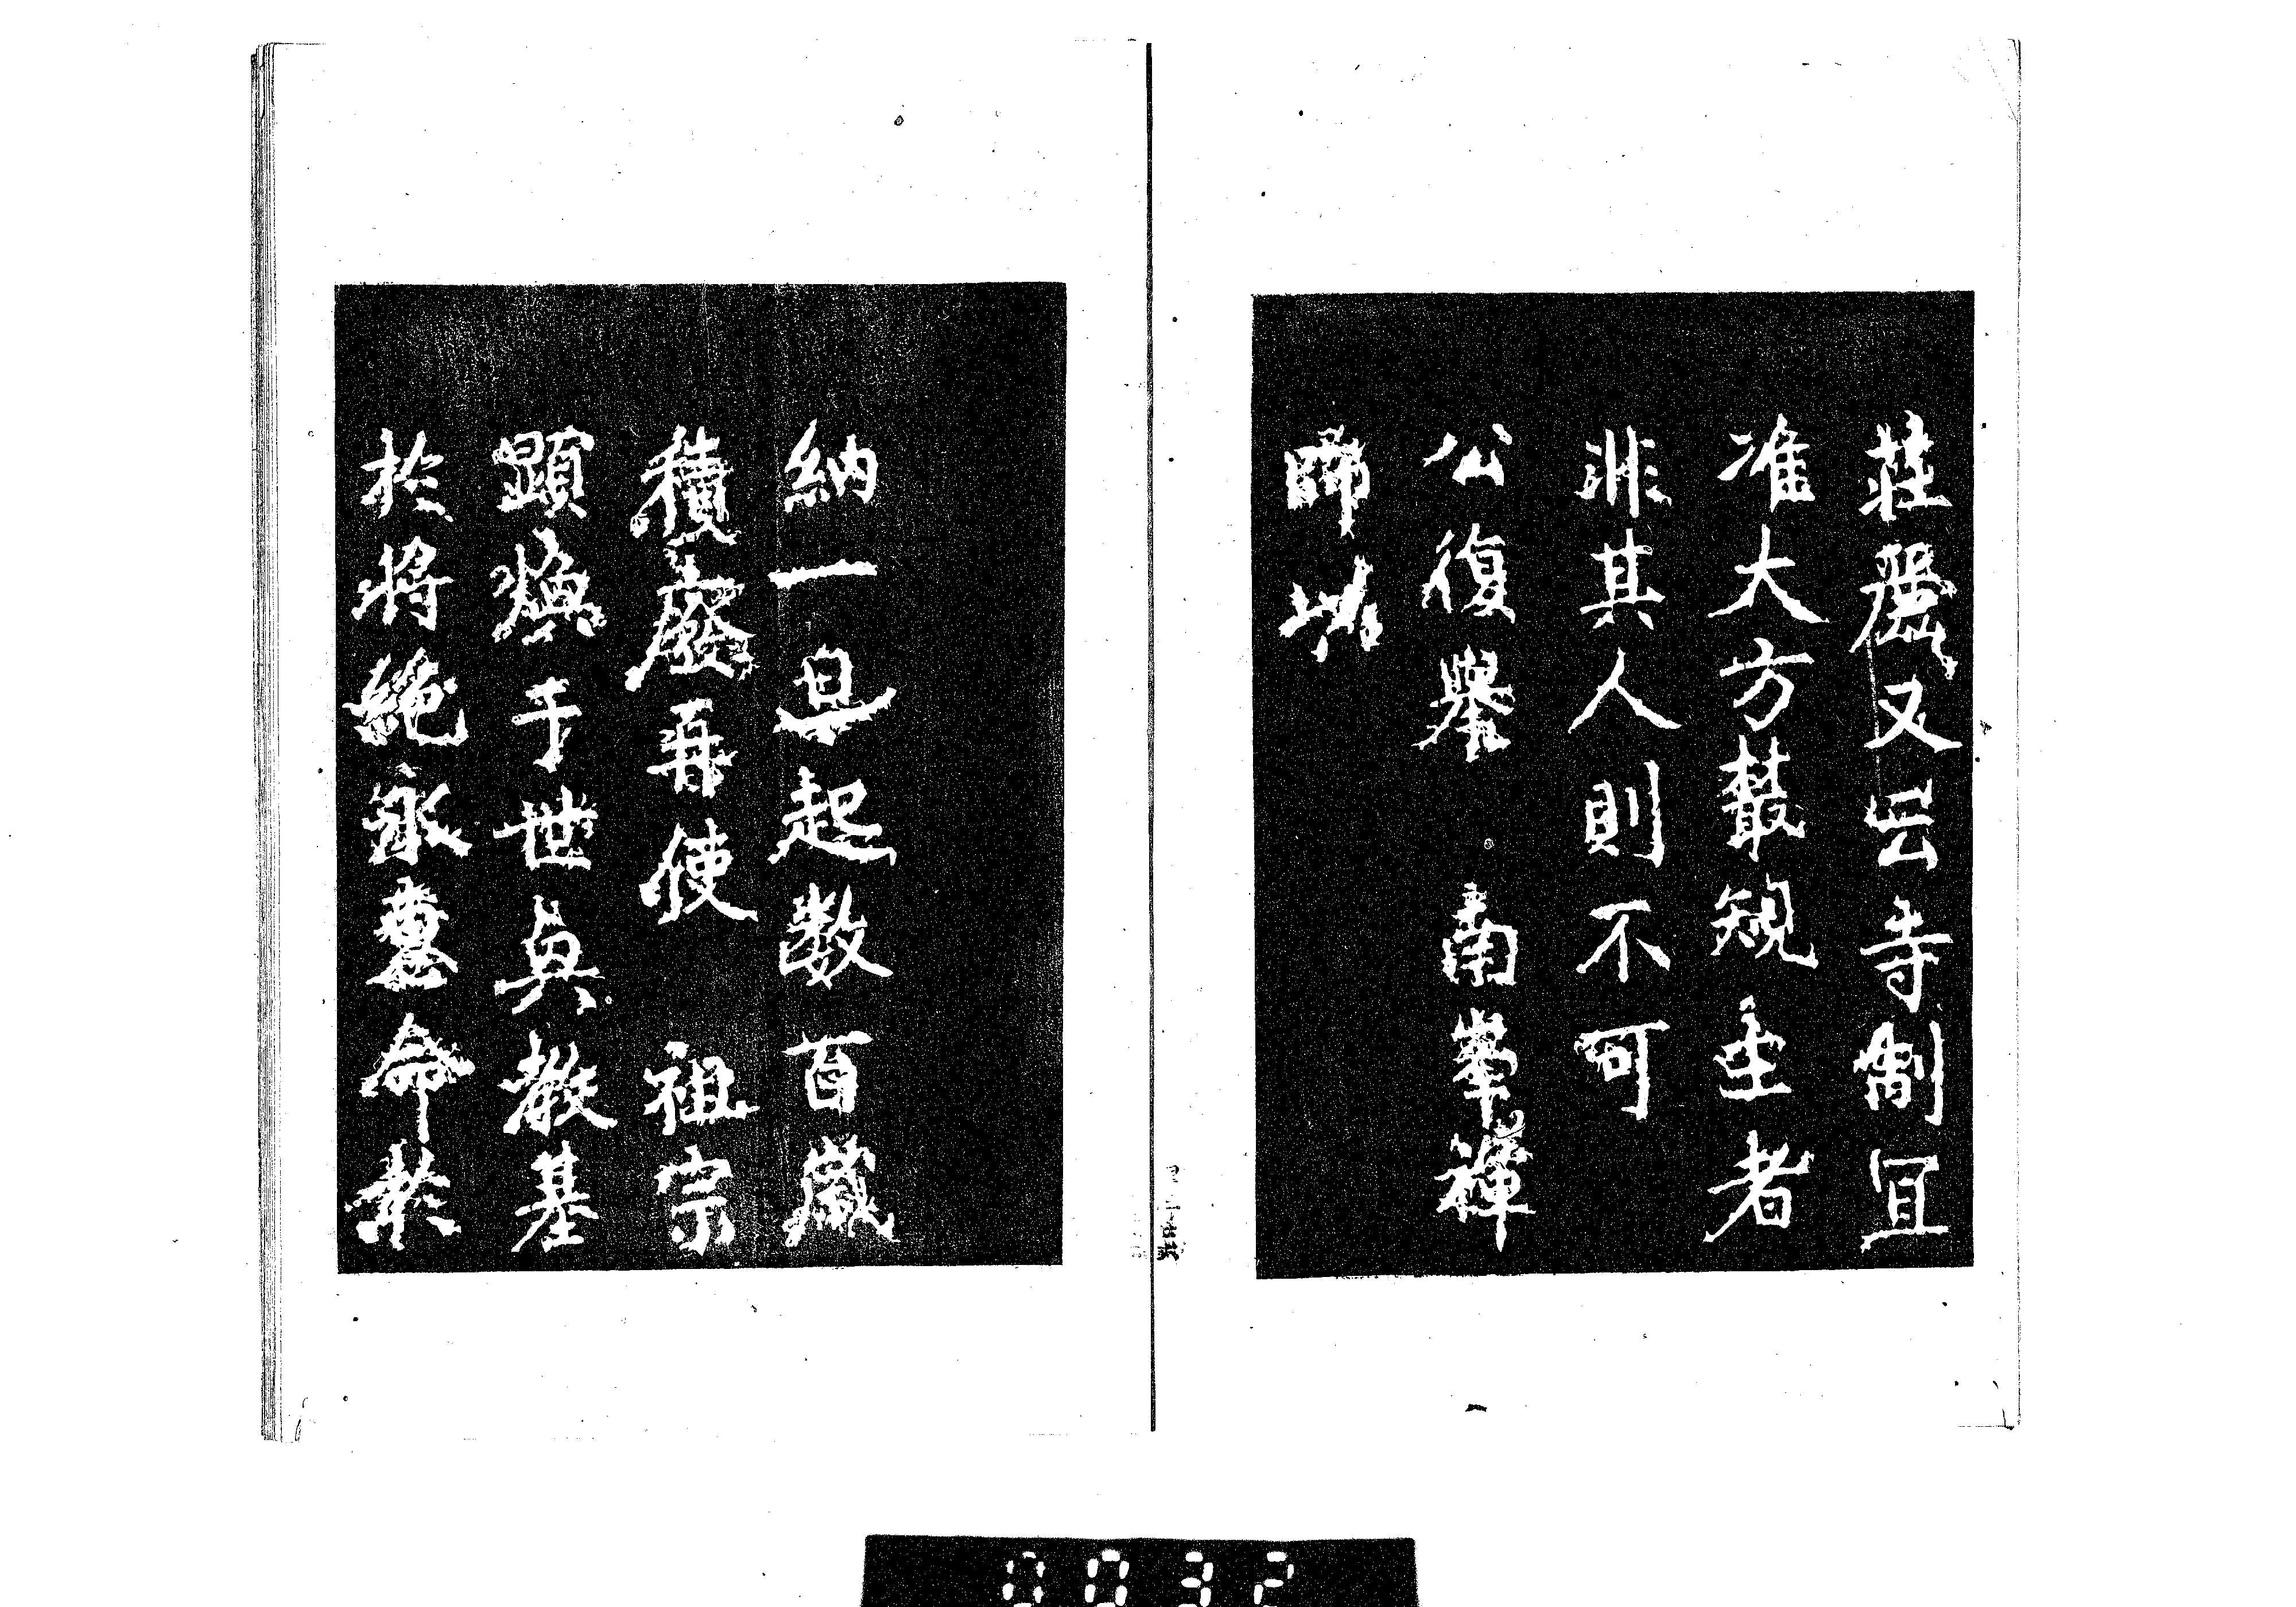 莊麗又云寺制宜
准大方叢規主者
非其人則不可
公復舉　南宗禪
師
納一具起数百歲
積廢再使　祖宗
顕煥于世真教基
於將絶永薫命業
0032